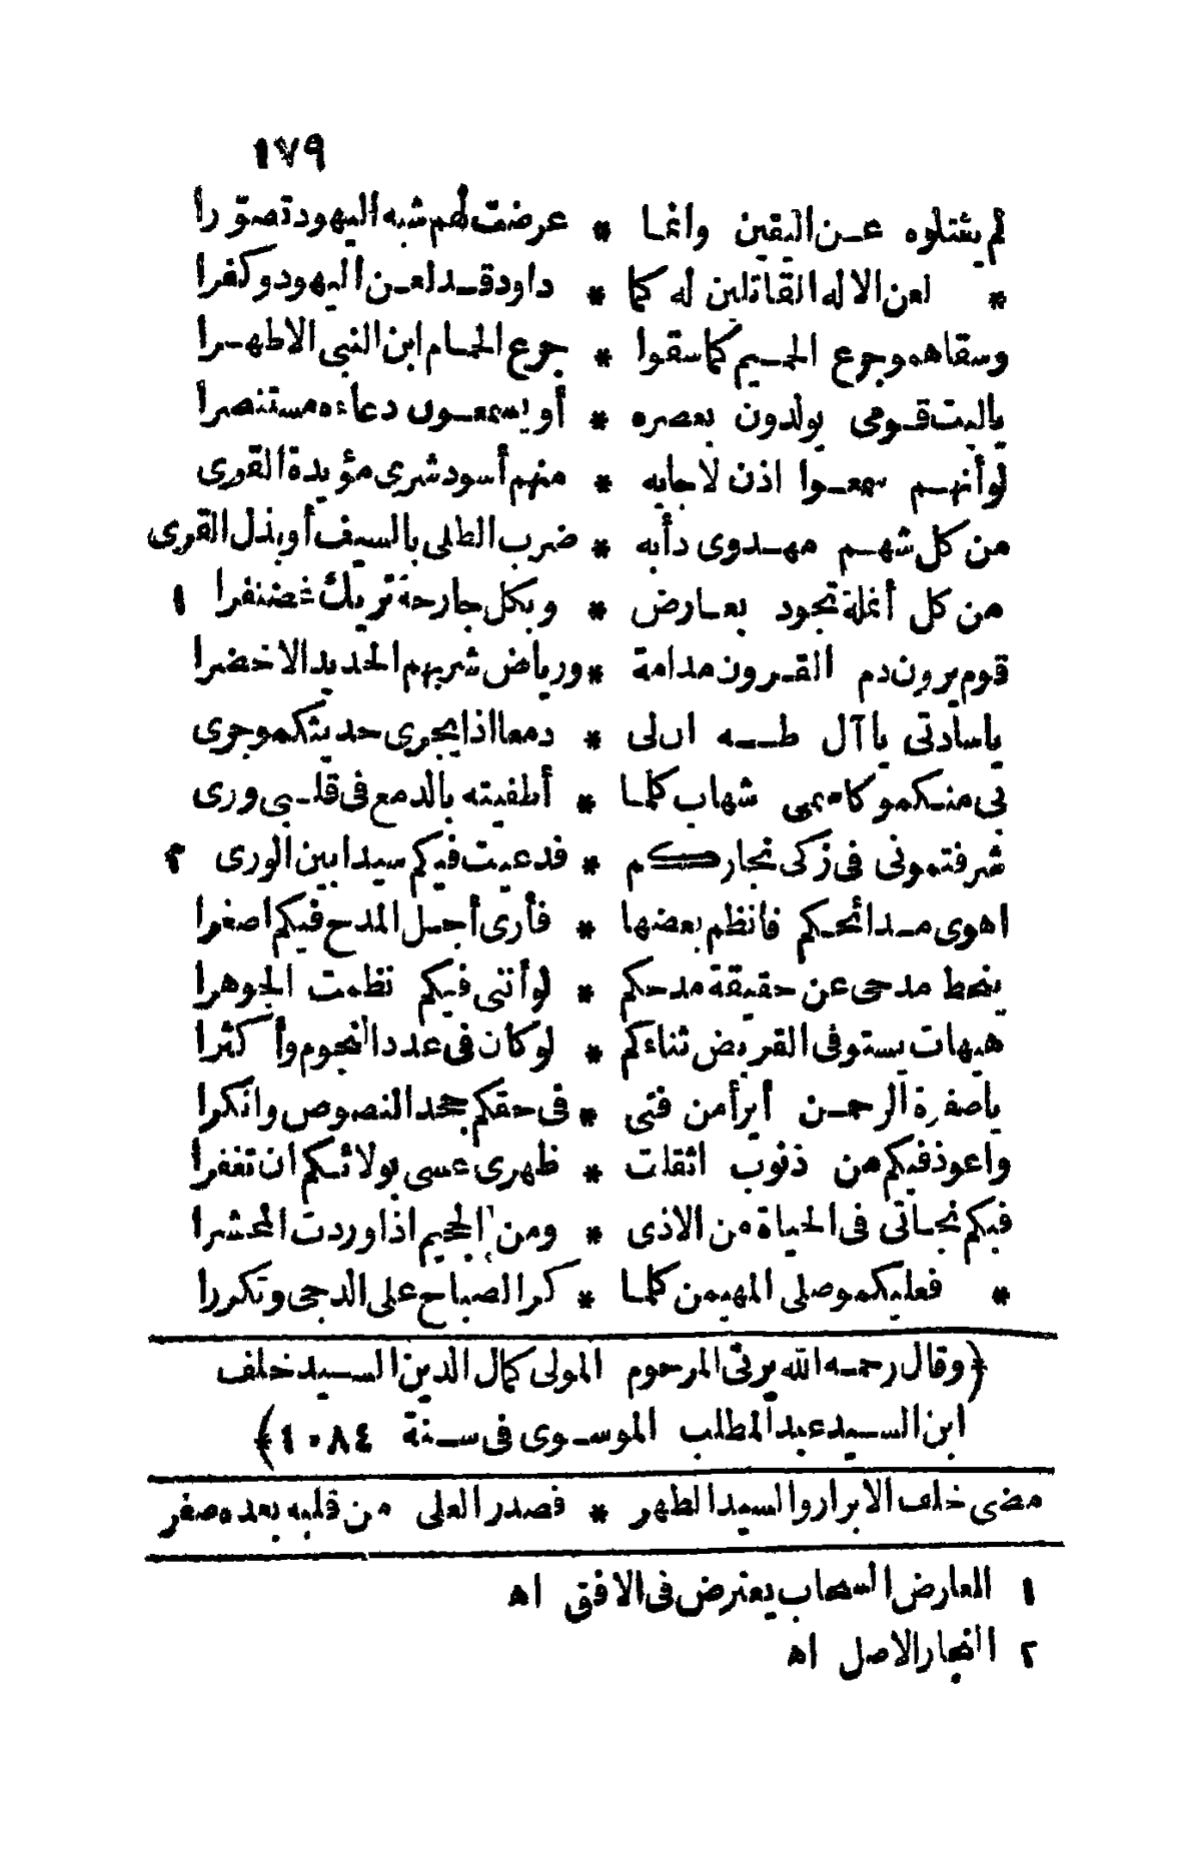 ١٧٩
لم يقتلوه عن اليقين وانما * عرضت لهم شبه اليهود تصوّرا
* لعن الاله القاتلين له كما * داود قد لعن اليهود وكفرا
وسقاهمو جرع الحميم كما سقوا * جرع الحمام ابن النبي الاطهرا
ياليت قومى يولدون بعصره * أو يسمعون دعاءه مستنصرا
لو أنهم سمعوا اذن لاجابه * منهم أسود شرى مؤيدة القوى
من كل شهم مهدوى دأبه * ضرب الطلى بالسيف أو بذل القرى
من كل أنملة تجود بعارض * وبكل جارحة تريك غضنفرا ١
قوم يرون دم القرون مدامة * ورياض شربهم الحديد الاخضرا
ياسادتى يا آل طه ان لى * دمعا اذا يجرى حديثكم وجرى
بى منكمو كاسمى شهاب كلما * أطفيته بالدمع فى قلبى ورى
شرفتمونى فى زكى نجاركم * فدعيت فيكم سيدا بين الورى ٢
اهوى مدائحكم فانظم بعضها * فأرى أجل المدح فيكم اصغرا
ينحط مدحى عن حقيقة مدحكم * لو أننى فيكم نظمت الجوهرا
هيهات يستوفى القريض ثناءكم * لو كان فى عدد النجوم وأكثرا
ياصفوة الرحمن أبرأ من فتى * فى حقكم جحد النصوص وانكرا
واعوذ فيكم من ذنوب اثقلت * ظهرى عسى بولائكم ان تغفرا
فبكم نجاتى فى الحياة من الاذى * ومن الجحيم اذا وردت المحشرا
* فعليكمو صلى المهيمن كلما * كر الصباح على الدجى وتكررا
﴿وقال رحمه الله يرثى المرحوم المولى كمال الدين السيد خلف
ابن السيد عبد المطلب الموسوى فى سنة ١٠٨٤﴾
مضى خلف الابرار والسيد الطهر * فصدر العلى من قلبه بعده صفر
١ العارض السحاب يعترض فى الافق اه
٢ النجار الاصل اه